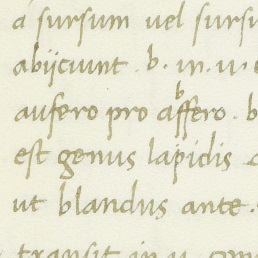 a sursum vel sursu
abijciunt · b · in · u ·
aufero pro abffero · b
est genus lapidis
ut blandus ante ·
transit in u